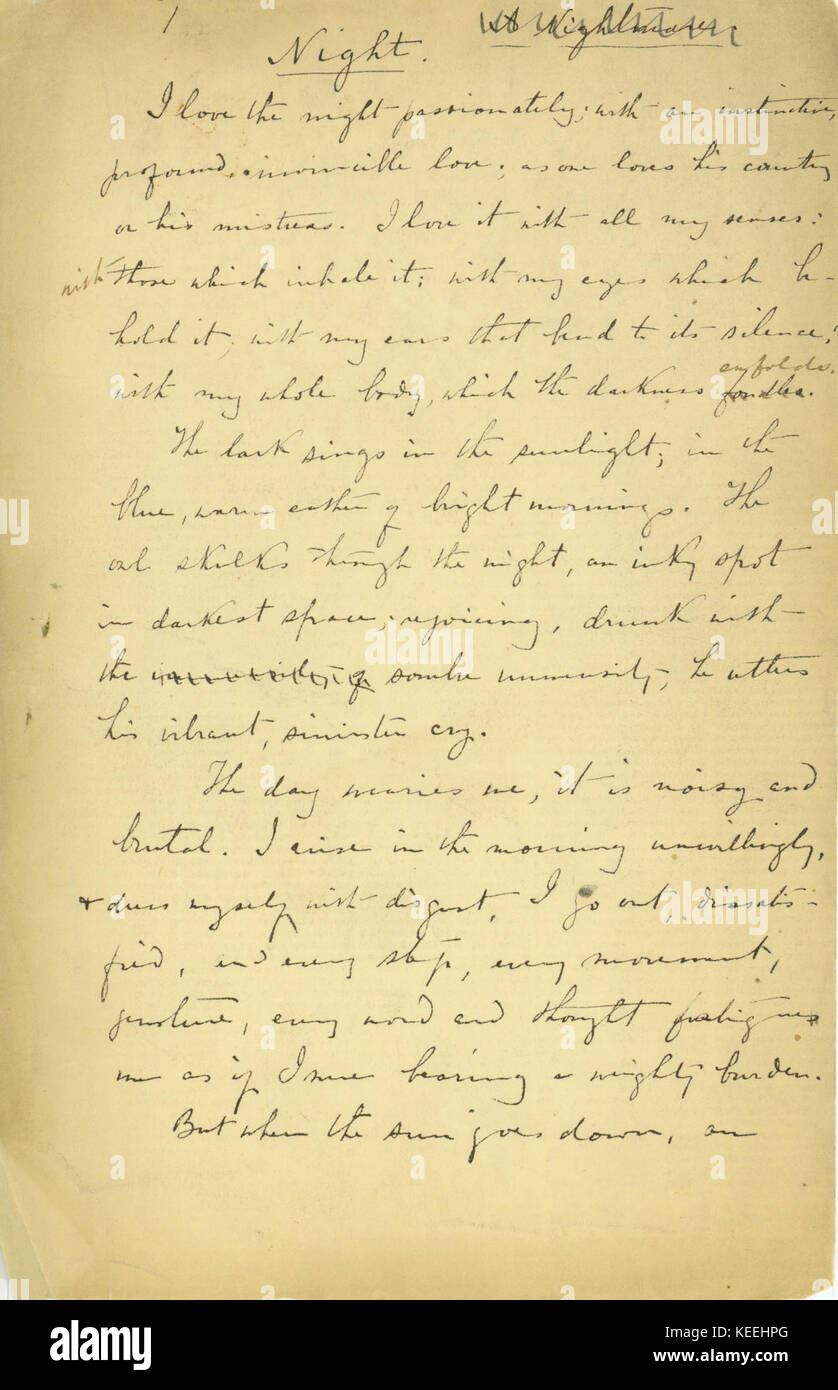 1
Night. A Nightmare
I love the night passionately; with an instinctive,
profound, invincible love; as one loves his country
or his mistress. I love it with all my senses:
with those which inhale it; with my eyes which be-
hold it; with my ears that bend to its silence;
with my whole body, which the darkness fondles. enfolds.
The lark sings in the sunlight; in the
blue, warm ether of bright mornings. The
owl skulks through the night, an inky spot
in darkest space; rejoicing, drunk with
the immensity of sombre immensity, he utters
his vibrant, sinister cry.
The day wearies me, it is noisy and
brutal. I arise in the morning unwillingly,
+ dress myself with disgust, I go out, dissatis-
fied, and every step, every movement,
gesture, every word and thought fatigues
me as if I were bearing a weighty burden.
But when the sun goes down, an
alamy
Image ID: KEEHPG
www.alamy.com